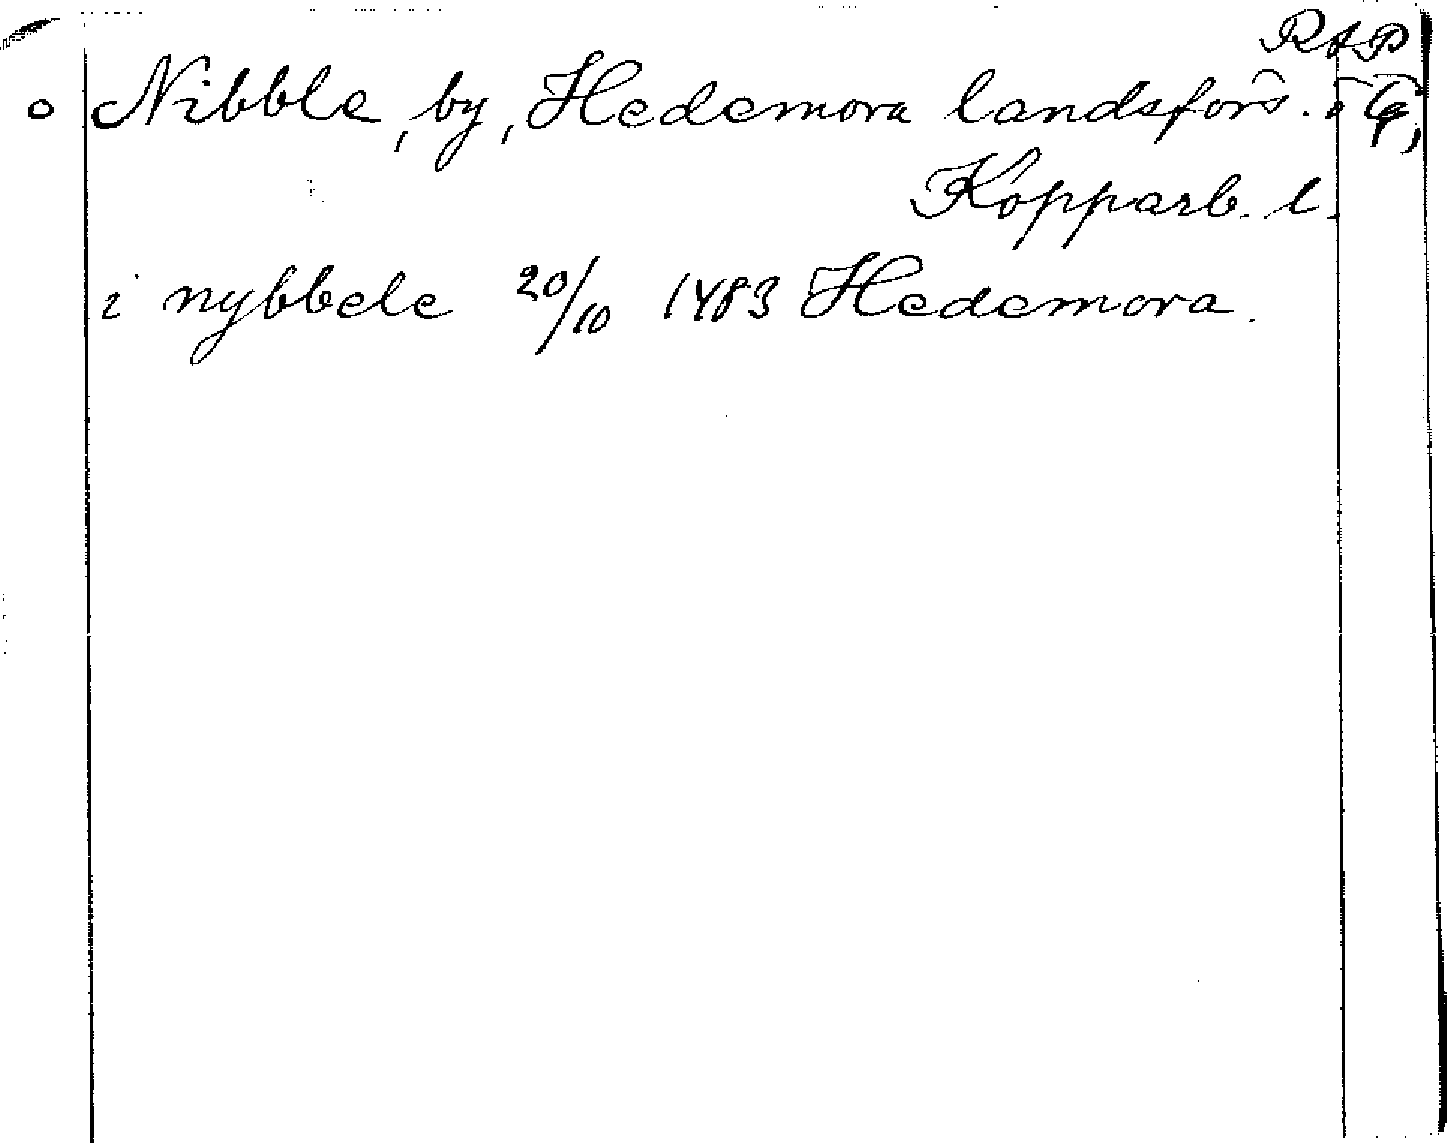 RAP
o Nibble, by, Hedemora landsförs.
Kopparb. l.
i nybbele 20/10 1483 Hedemora.